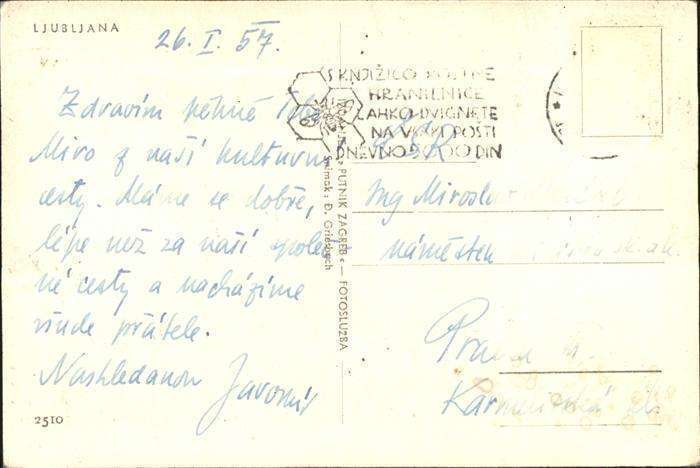 LJUBLJANA
26. I. 57.
Zdravím pěkně Tebe
Miro z naší kulturní
cesty. Máme se dobře,
lépe než za naší společ
né cesty a nacházíme
všude přátele.
Nashledanou Jaromír
2510
S KNJIŽICO POŠTNE
HRANILNICE
LAHKO DVIGNETE
NA VSAKI POŠTI
DNEVNO 50.000 DIN
PUTNIK ZAGREB« — FOTOSLUŽBA
Snimak: Đ. Griesbach
ČSR
Ing Miroslav
náměstek
Praha
Karmelitská